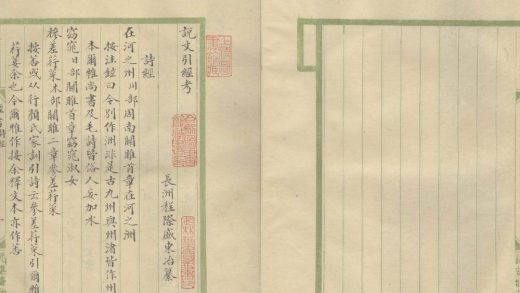 說文引經考
長洲程際盛東冶纂
詩經
在河之州川部周南關雎首章在河之洲
按注鉉曰今別作洲非是古九州與州渚皆作州
本爾雅尚書及毛詩皆俗人妄加水
窈窕日部關雎首章窈窕淑女
槮差荇菜木部關雎二章參差荇菜
按莕或从行顏氏家訓引詩云參差荇菜引爾雅
荇妾余也今爾雅作接余釋文木亦作莕